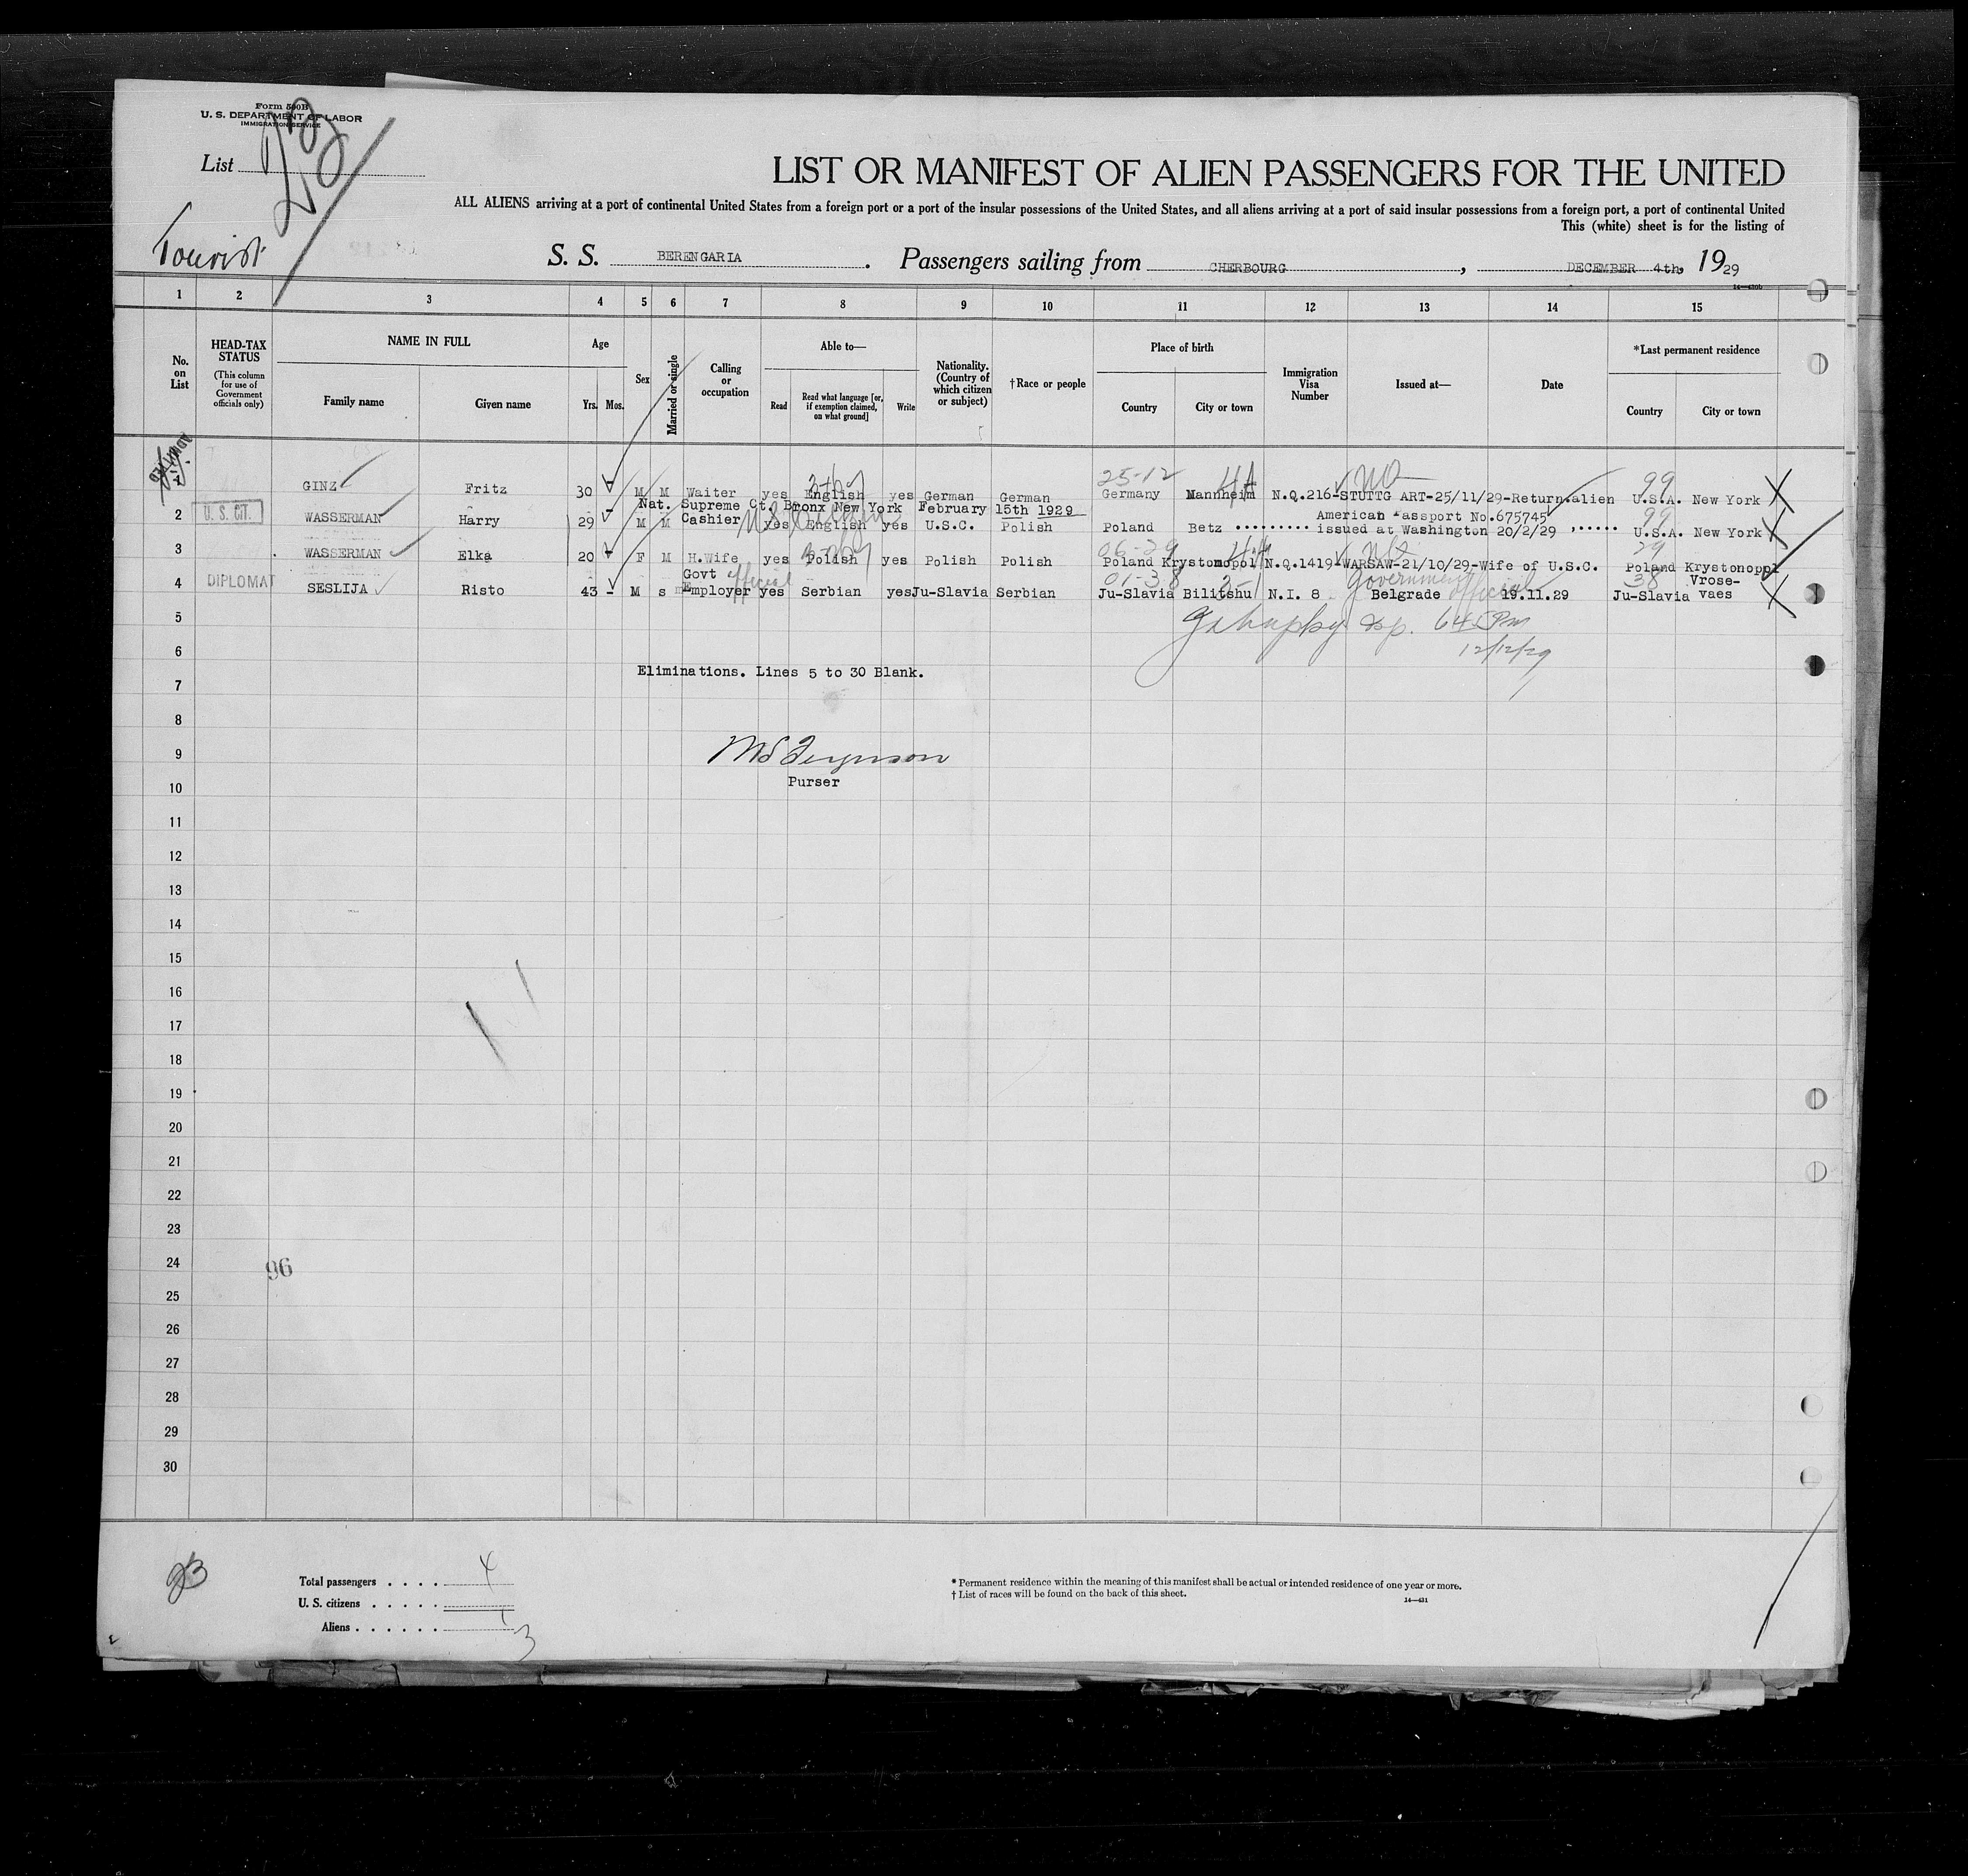 Form 500B
U. S. DEPARTMENT OF LABOR
IMMIGRATION SERVICE
List 23
Tourist
LIST OR MANIFEST OF ALIEN PASSENGERS FOR THE UNITED
ALL ALIENS arriving at a port of continental United States from a foreign port or a port of the insular possessions of the United States, and all aliens arriving at a port of said insular possessions from a foreign port, a port of continental United
This (white) sheet is for the listing of
S. S. BERENGARIA. Passengers sailing from CHERBOURG, DECEMBER 4th, 1929
1 2 3 4 5 6 7 8 9 10 11 12 13 14 15
No. on List
HEAD-TAX STATUS
(This column for use of Government officials only)
NAME IN FULL
Family name Given name
Age
Yrs. Mos.
Sex
Married or single
Calling or occupation
Able to—
Read
Read what language [or, if exemption claimed, on what ground]
Write
Nationality. (Country of which citizen or subject)
†Race or people
Place of birth
Country City or town
Immigration Visa Number
Issued at—
Date
*Last permanent residence
Country City or town
ADMITTED
25-12 99
1 GINZ Fritz 30 M M Waiter yes English yes German German Germany Mannheim N.Q.216-STUTTG ART-25/11/29-Return.alien U.S.A. New York
Nat. Supreme Ct. Bronx New York February 15th 1929 American Passport No.675745 99
2 U. S. CIT. WASSERMAN Harry 29 M M Cashier yes English yes U.S.C. Polish Poland Betz .......... issued at Washington 20/2/29 ,...... U.S.A. New York
06-29 29
3 WASSERMAN Elka 20 F M H.Wife yes Polish yes Polish Polish Poland Krystonopol N.Q.1419-WARSAW-21/10/29-Wife of U.S.C. Poland Krystonopol
01-38 2-1 Government official 38
4 DIPLOMAT SESLIJA Risto 43 - M s Govt Employer official yes Serbian yes Ju-Slavia Serbian Ju-Slavia Bilitshu N.I. 8 Belgrade 19.11.29 Ju-Slavia Vrose-vaes
5
6 12/12/29
Eliminations. Lines 5 to 30 Blank.
7
8
9 Ferguson
Purser
10
11
12
13
14
15
16
17
18
19
20
21
22
23
24
96
25
26
27
28
29
30
23
Total passengers . . . . 4
U. S. citizens . . . . . 1
Aliens . . . . . . 3
* Permanent residence within the meaning of this manifest shall be actual or intended residence of one year or more.
† List of races will be found on the back of this sheet.
14—431